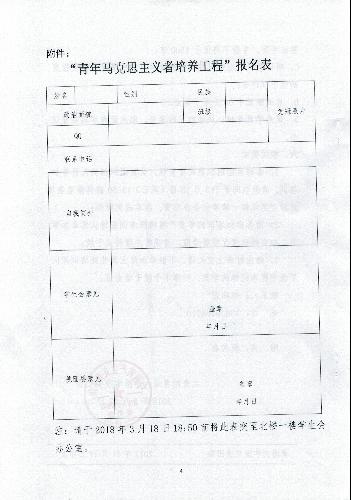 附件：
“青年马克思主义者培养工程”报名表
姓名 性别 民族 免冠照片
政治面貌 班级
QQ
联系电话
自我简介
学生会意见
签章
年月日
团总支意见
签章
年月日
注：请于2018年3月18日18:50前将此表交至北楼一楼学生会
办公室。
4